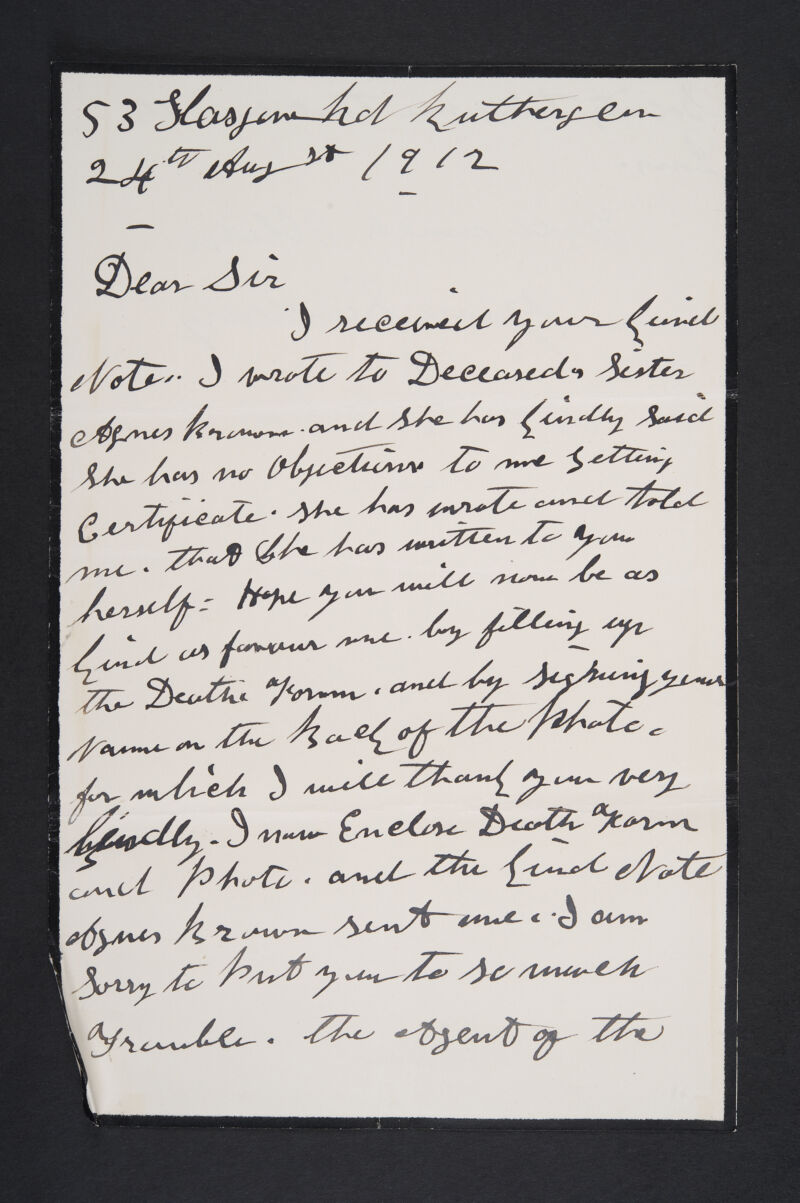 53 Glasgow Rd Rutherglen
24th Augst 1912
Dear Sir
I received your kind
Note. I wrote to Deceaseds Sister
Agnes Brown. and she has kindly said
She has no Objections to me getting
Certificate. she has wrote and told
me. that She has written to you
herself = Hope you will now be as
kind as favour me. by filling up
the Deathe Form. and by signing your
Name on the Back of the Photo.
for which I will thank you very
kindly. I now Enclose Death Form
and Photo. and the kind Note
Agnes Brown sent me. I am
Sorry to Put you to so much
Trouble. the Agent of the